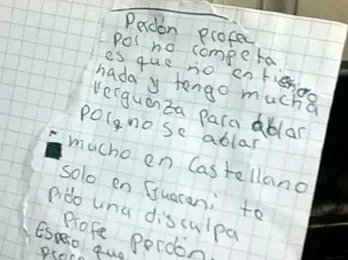 Perdón profe
por no competa
es que no entiendo
nada y tengo mucha
verguenza para ablar
porq no se ablar
mucho en castellano
solo en Guarani te
pido una disculpa
Profe perdón
Espero que